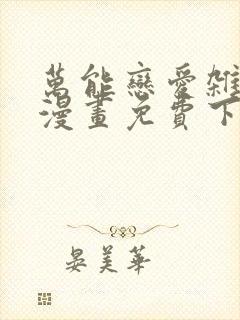 萬能戀愛雜
漫畫免費下
晏美華